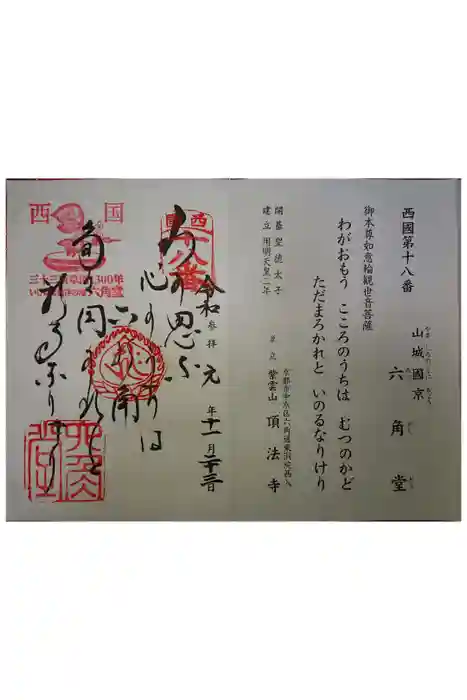 西國第十八番
山城國京
やましろのくに きょう
六角堂
ろっかくどう
御本尊如意輪観世音菩薩
わがおもう こころのうちは むつのかど
ただまろかれと いのるなりけり
開基 聖徳太子
建立 用明天皇二年
京都市中京区六角通東洞院西入
単立 紫雲山 頂法寺
令和 元 年 十一 月 二十三 日
参拝
わが思ふ
心のうちは
六の角
西国
十八番
西国
三十三所草創1300年
六角堂